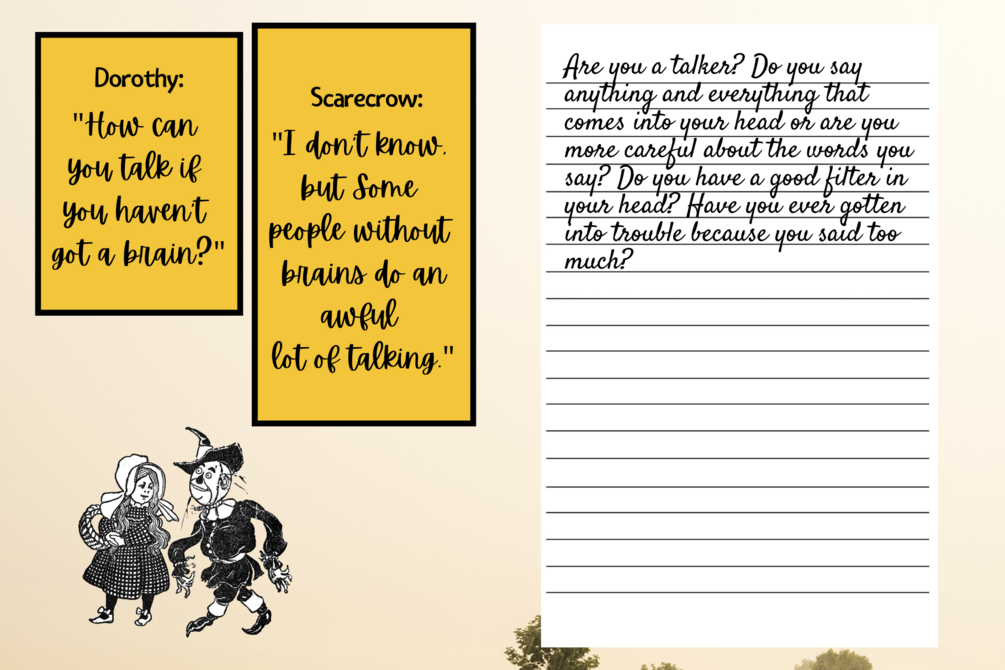 Dorothy:
"How can
you talk if
you haven't
got a brain?"
Scarecrow:
"I don't know.
but Some
people without
brains do an
awful
lot of talking."
Are you a talker? Do you say
anything and everything that
comes into your head or are you
more careful about the words you
say? Do you have a good filter in
your head? Have you ever gotten
into trouble because you said too
much?